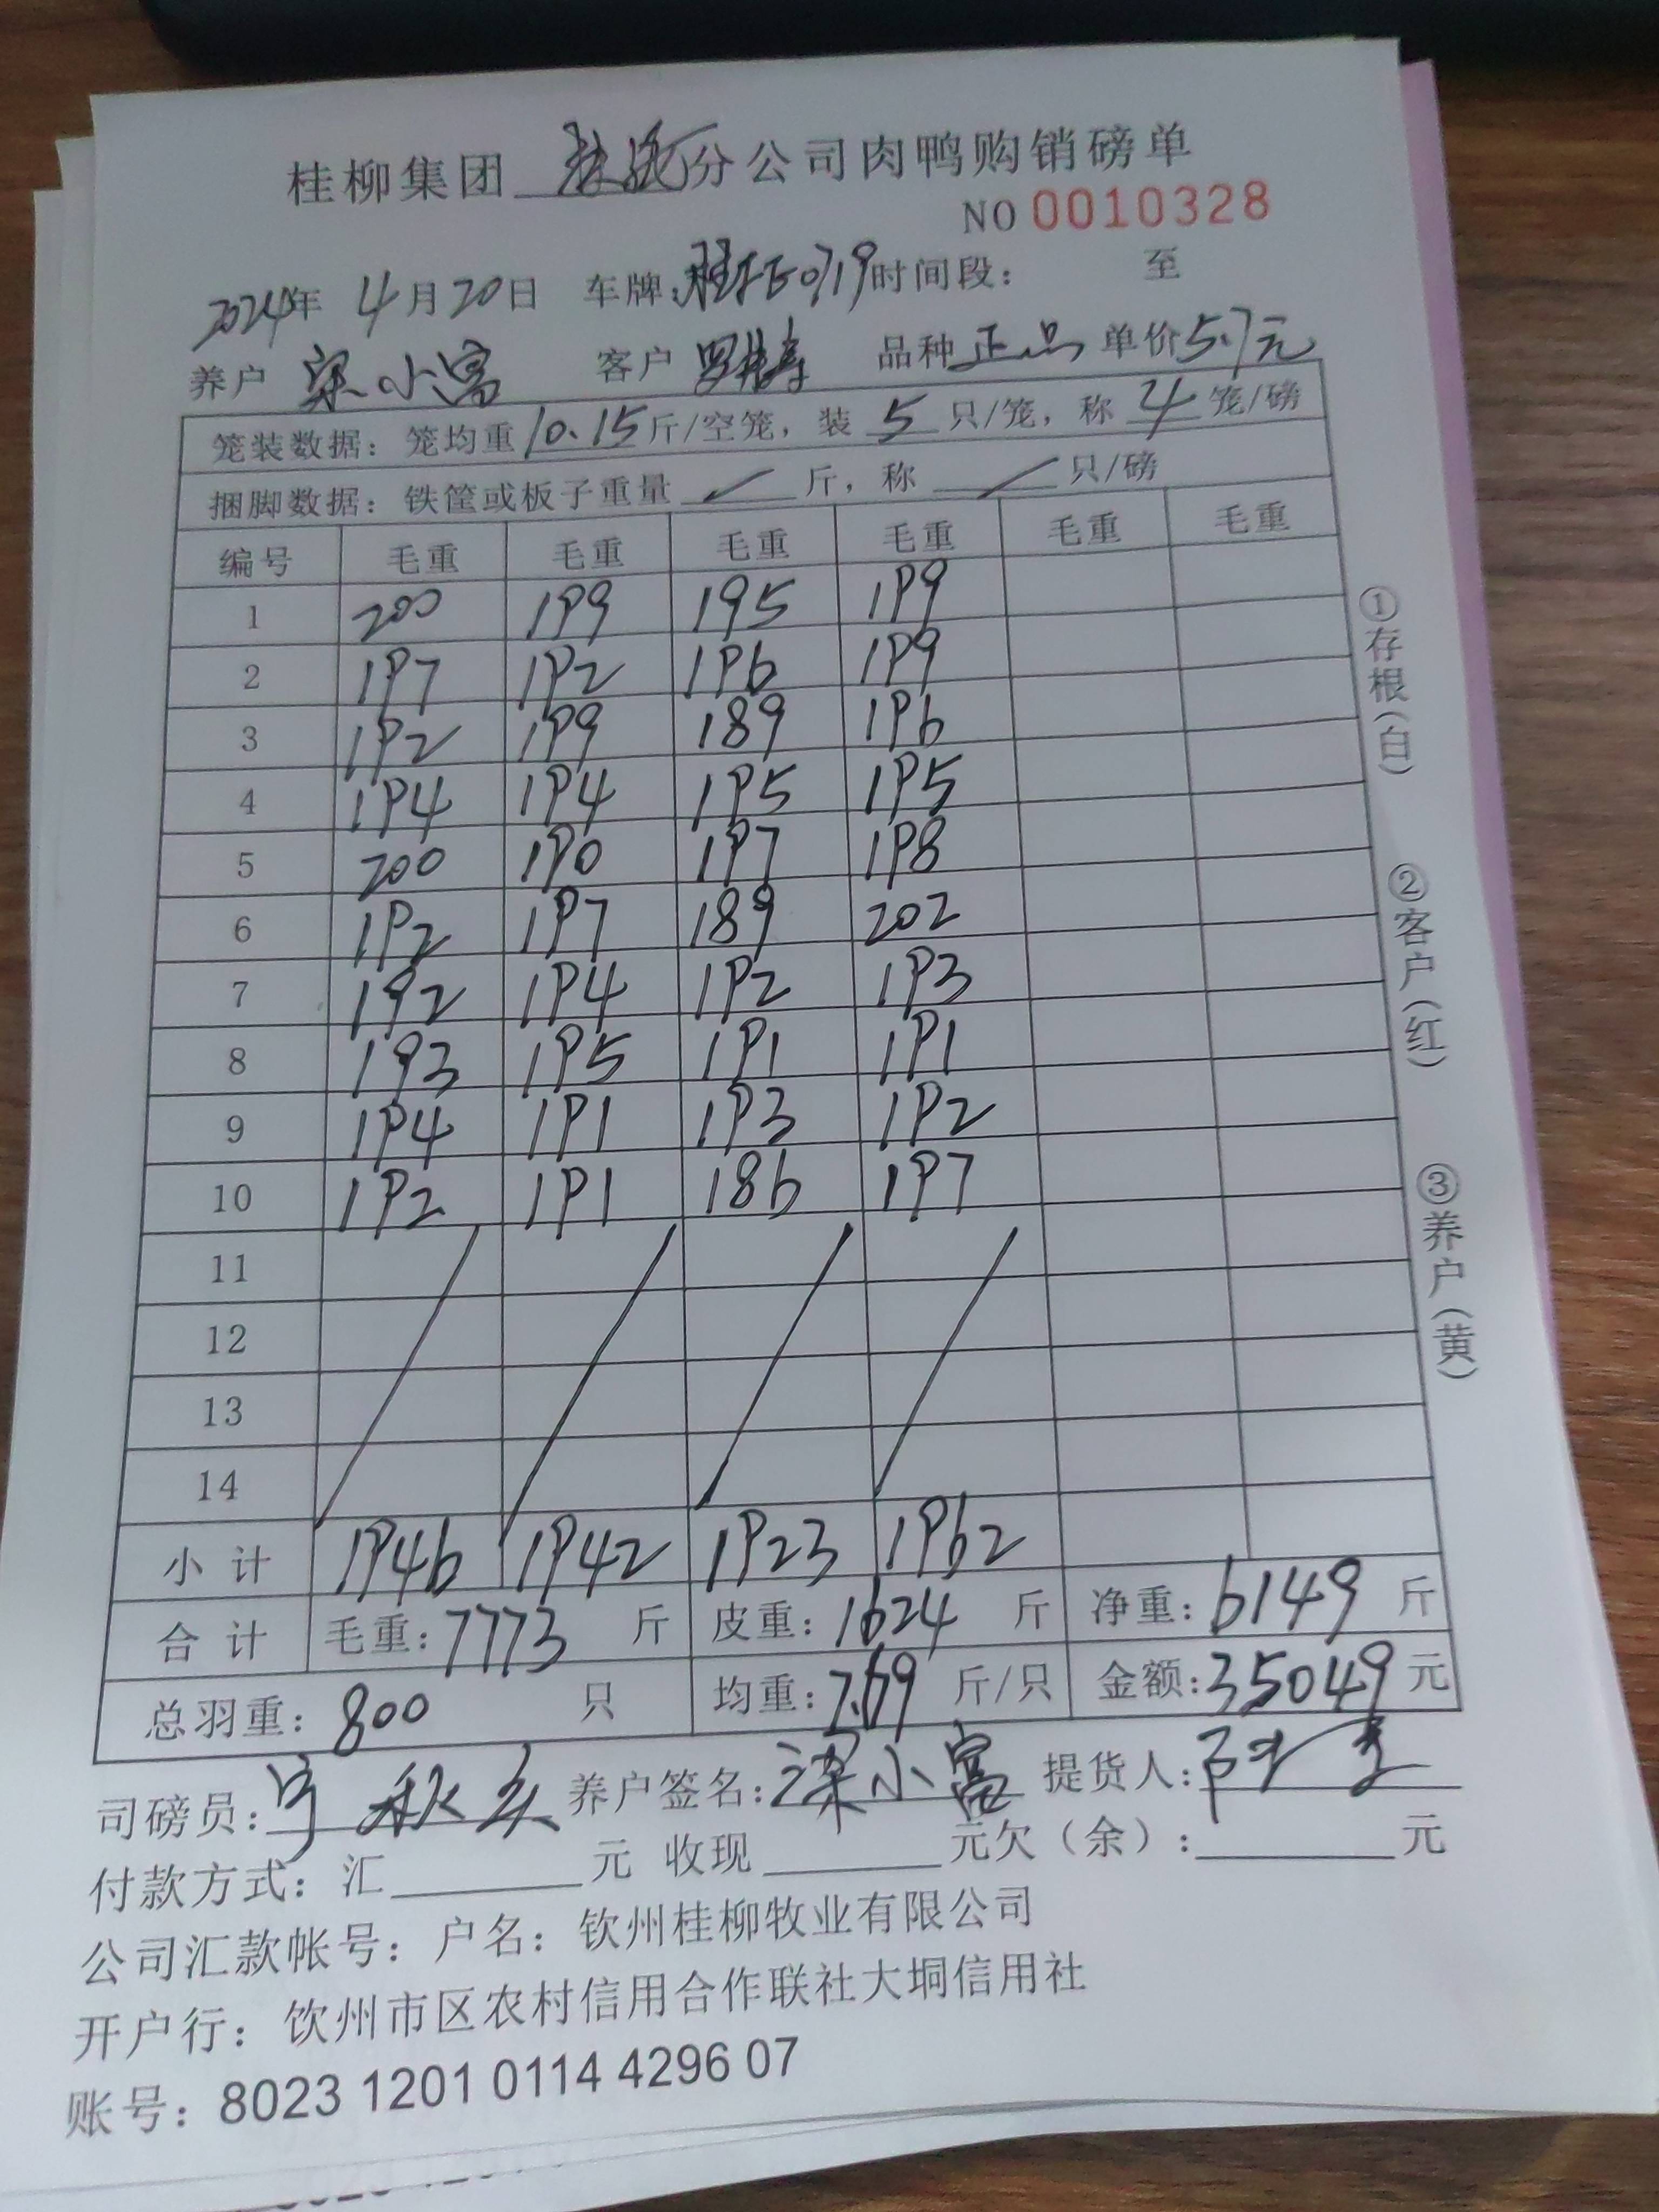 桂柳集团 分公司肉鸭购销磅单
NO 0010328
2024年 4月20日 车牌: 时间段: 至
养户 梁小富 客户 罗 品种 正品 单价 5.7元
笼装数据: 笼均重 10.15 斤/空笼, 装 5 只/笼, 称 4 笼/磅
捆脚数据: 铁筐或板子重量 斤, 称 只/磅
编号 毛重 毛重 毛重 毛重 毛重 毛重
1 200 199 195 199
2 197 192 196 199
3 192 199 189 196
4 194 194 195 195
5 200 190 197 198
6 192 197 189 202
7 192 194 192 193
8 193 195 191 191
9 194 191 193 192
10 192 191 186 197
11
12
13
14
小计 1946 1942 1923 1962
合计 毛重: 7773 斤 皮重: 1624 斤 净重: 6149 斤
总羽重: 800 只 均重: 7.69 斤/只 金额: 35049 元
司磅员: 养户签名: 梁小富 提货人:
付款方式: 汇 元 收现 元欠(余): 元
公司汇款帐号: 户名: 钦州桂柳牧业有限公司
开户行: 饮州市区农村信用合作联社大垌信用社
账号: 8023 1201 0114 4296 07
①存根(白) ②客户(红) ③养户(黄)